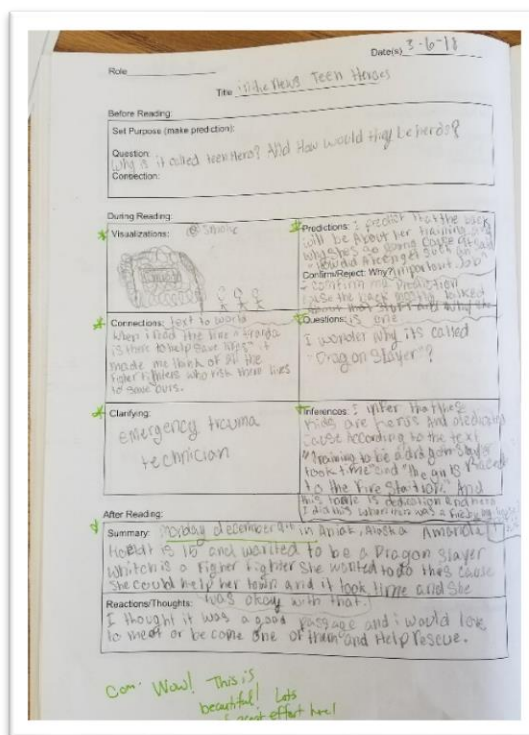 Date(s) 3-6-18
Role
Title in the News Teen Heroes
Before Reading:
Set Purpose (make prediction):
Question:
Why is it called teen Hero? And How would they be heros?
Connection:
During Reading:
Visualizations:
smoke
Predictions: I predict that the back
will be About her training and
why shes so young cause it said
"How did A teen get such an
important Job"
Confirm/Reject: Why?
I confirm my Prediction
cause the back mostly talked
about that stuff and why she
is one
Connections: text to world
When I read the line
is there to help save lives" it
made me think of all the
Figher fighters who risk there lives
to save ours.
Questions:
I wonder why its called
"Dragon Slayer"?
Clarifying:
Emergency trauma
technician
Inferences: I infer that these
Kids are heros And dedicated
cause According to the text
"Training to be a dragon Slayer
took time" and "The girls Raced
to the Fire Station". And
this to me is dedication and hero
After Reading:
Summary: monday december in Aniak, Alaska Amanda
is 15 and wanted to be a Dragon slayer
Whitch is a Figher Fighter She wanted to do this cause
She could help her town and it took time and She
was okay with that.
Reactions/Thoughts:
I thought it was a good passage and i would love
to meet or be come one of them and Help rescue.
Wow! This is
beautiful! Lots
great effort here!